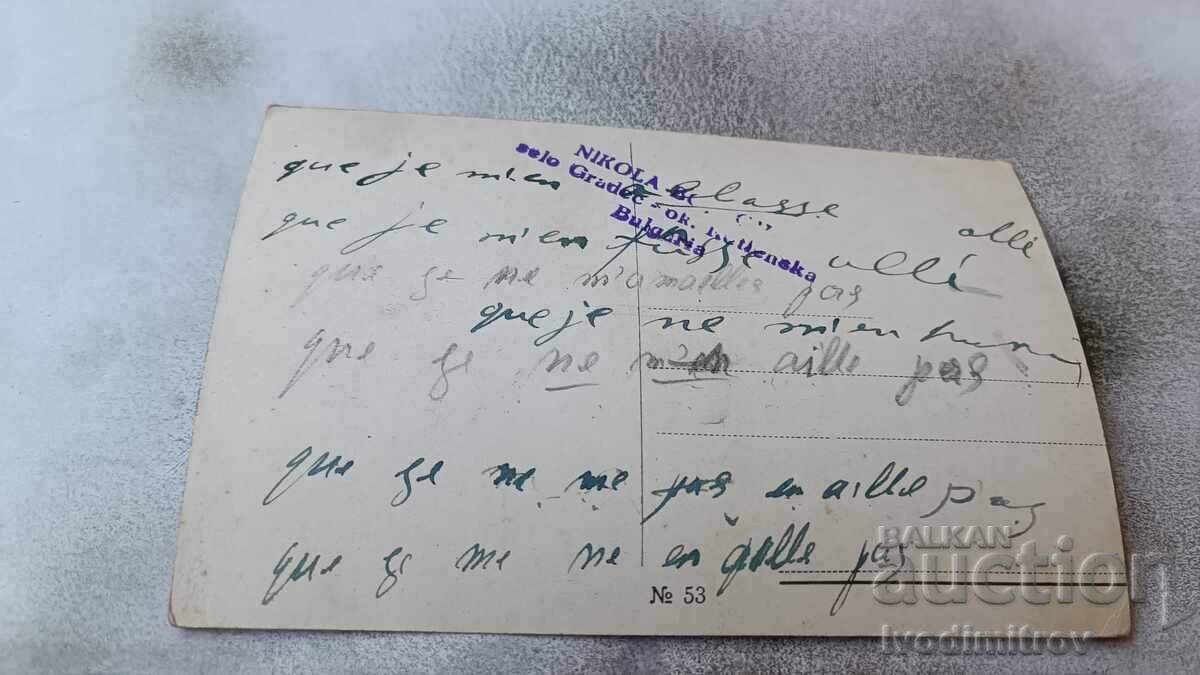 NIKOLA
selo Gradec - ok.
Bulgaria
que je m'en
que je m'en fusse allé
allé
que ge ne m'amailles pas
que je ne m'en
que ge ne m'en aille pas
que ge ne me pas en aille pas
que ge me ne en aille pas
№ 53
BALKAN
auction
Ivodimitrov